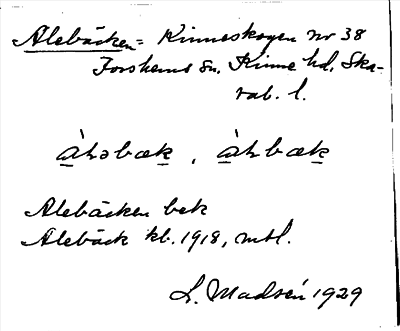 Alebäcken = Kinneskogen nr 38
Forshems sn, Kinne hd, Ska-
rab. l.
àləbæk, àlbæk
Alebäcken bek
Alebäck kb. 1918, mtl.
L. Madsén 1929